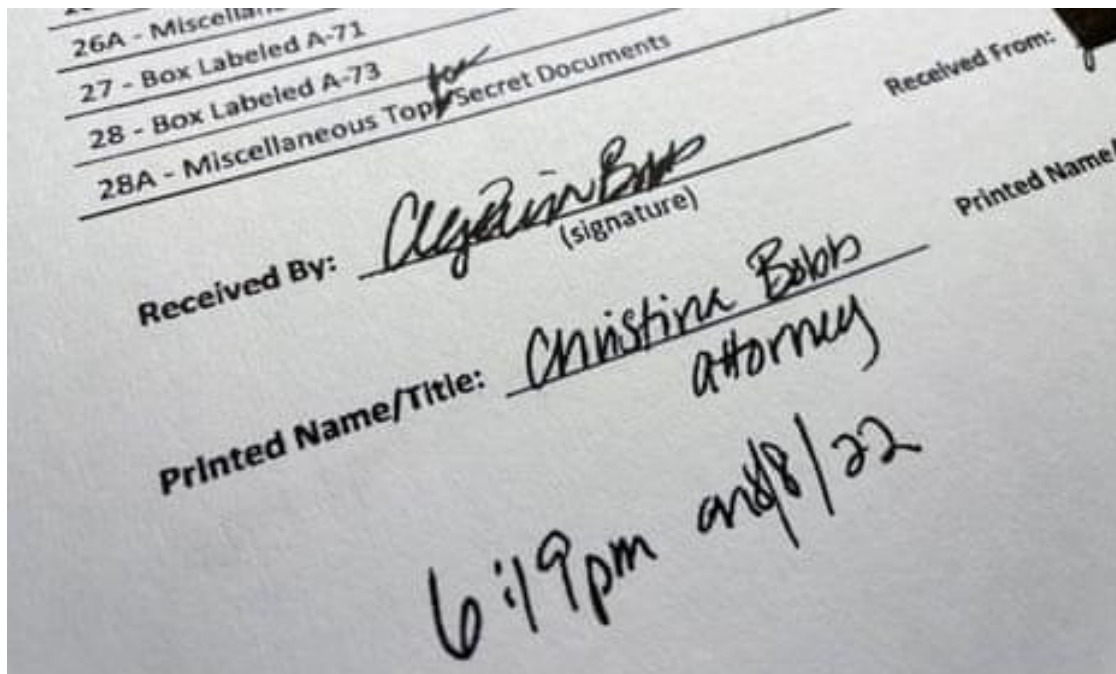 26A - Miscellan
27 - Box Labeled A-71
28 - Box Labeled A-73
28A - Miscellaneous Top Secret Documents
Received By:
(signature)
Received From:
Printed Name/Title: Christina Bobb
attorney
Printed Name/
6:19pm on 8/8/22